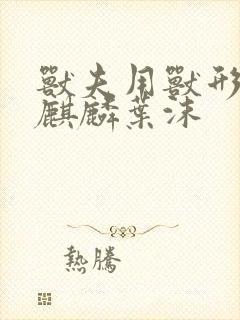 獸夫用獸形
麒麟葉沫
熱騰